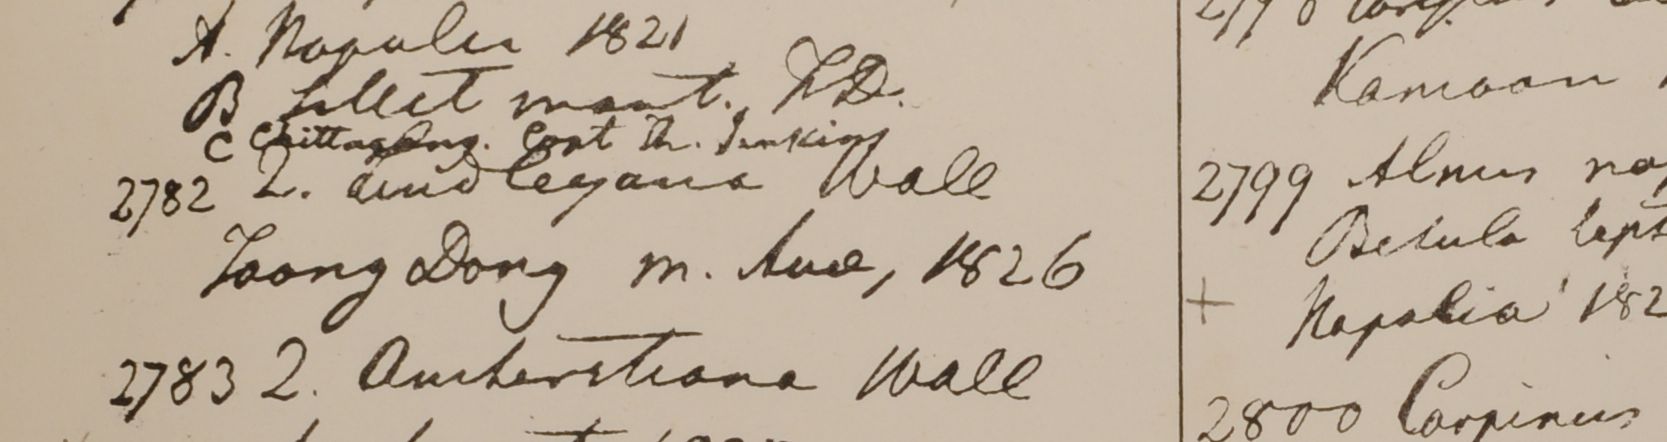 A. Napalia 1821
B Sillet mont. F.D.
C Chittagong. Capt Th. Jenkins
2782 Q. Lindleyana Wall
Toong Dong m. Avae, 1826
2783 Q. Amherstiana Wall
2798
Kamoon
2799 Alnus
Betula lept
+ Napalia 182
2800 Carpinus